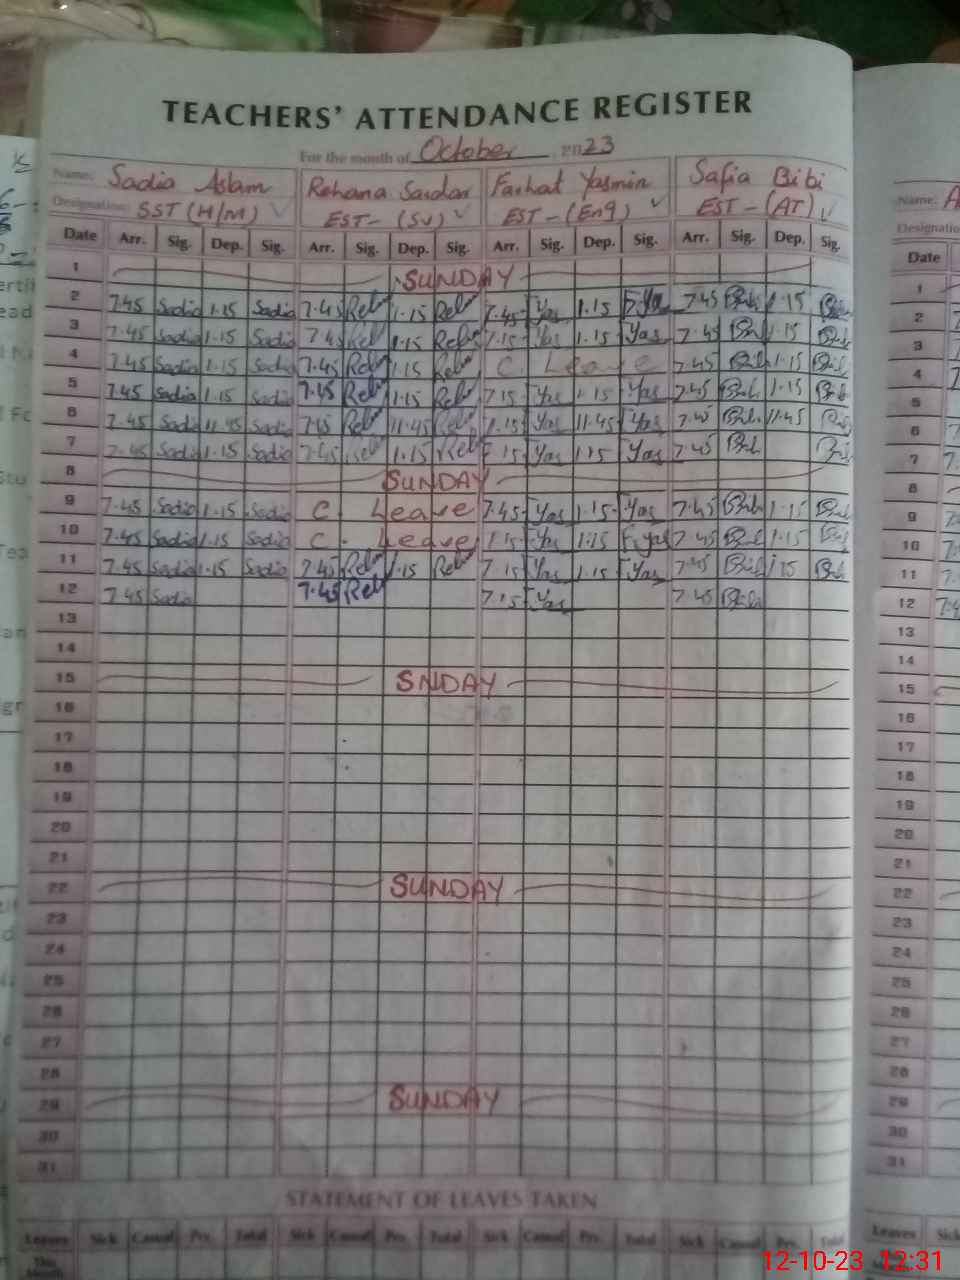 TEACHERS' ATTENDANCE REGISTER
For the month of October, 2023
Name: Sadia Aslam Rehana Sardar Farhat Yasmin Safia Bibi
Designation: SST (H/M) EST-(SV) EST-(Eng) EST-(AT)
Date Arr. Sig. Dep. Sig. Arr. Sig. Dep. Sig. Arr. Sig. Dep. Sig. Arr. Sig. Dep. Sig.
1 SUNDAY
2 7.45 Sadia 1.15 Sadia 7.45 Reh 1.15 Reh 7.45 Yas 1.15 F.Yas 7.45 Bibi 1.15 Bibi
3 7.45 Sadia 1.15 Sadia 7.45 Reh 1.15 Reh 7.15 Yas 1.15 Yas 7.45 Bibi 1.15 Bibi
4 7.45 Sadia 1.15 Sadia 7.45 Reh 1.15 Reh C. Leave 7.45 Bibi 1.15 Bibi
5 7.45 Sadia 1.15 Sadia 7.45 Reh 1.15 Reh 7.15 Yas 1.15 Yas 7.45 Bibi 1.15 Bibi
6 7.45 Sadia 11.45 Sadia 7.45 Reh 11.45 Reh 7.15 Yas 11.45 Yas 7.45 Bibi 11.45 Bibi
7 7.45 Sadia 1.15 Sadia 7.45 Reh 1.15 Reh 7.15 Yas 1.15 Yas 7.45 Bibi Bibi
8 SUNDAY
9 7.45 Sadia 1.15 Sadia C. Leave 7.45 Yas 1.15 Yas 7.45 Bibi 1.15 Bibi
10 7.45 Sadia 1.15 Sadia C. Leave 7.15 Yas 1.15 F.Yas 7.45 Bibi 1.15 Bibi
11 7.45 Sadia 1.15 Sadia 7.45 Reh 1.15 Reh 7.15 Yas 1.15 Yas 7.45 Bibi 1.15 Bibi
12 7.45 Sadia 7.45 Reh 7.15 Yas 7.45 Bibi
13
14
15 SNDAY
16
17
18
19
20
21
22 SUNDAY
23
24
25
26
27
28
29 SUNDAY
30
31
STATEMENT OF LEAVES TAKEN
Leaves Sick Casual Prv. Total Sick Casual Prv. Total Sick Casual Prv. Total Sick Casual Prv. Total
This
Month
Name: A
Designatio
Date
1
2
3
4
5
6
7
8
9
10
11
12
13
14
15
16
17
18
19
20
21
22
23
24
25
26
27
28
29
30
31
Leaves
12-10-23 12:31